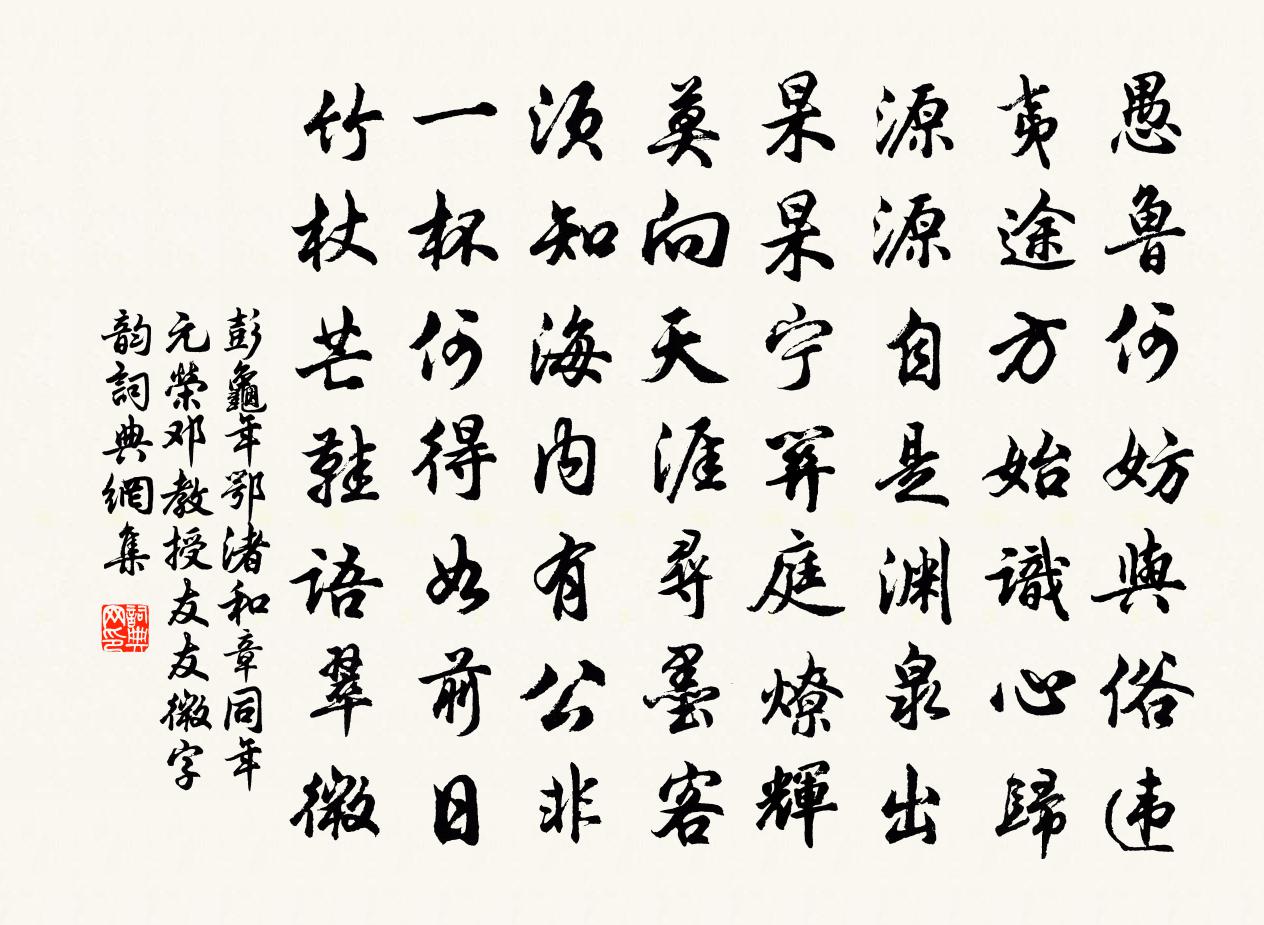 愚魯何妨與俗违
夷途方始識心歸
源源自是渊泉出
杲杲宁羿庭燎輝
莫向天涯尋墨客
須知海内有公非
一杯何得如前日
竹杖芒鞋語翠微
彭龜年鄂渚和章同年
元榮邓教授友友微字
韵詞典網集
詞典网印